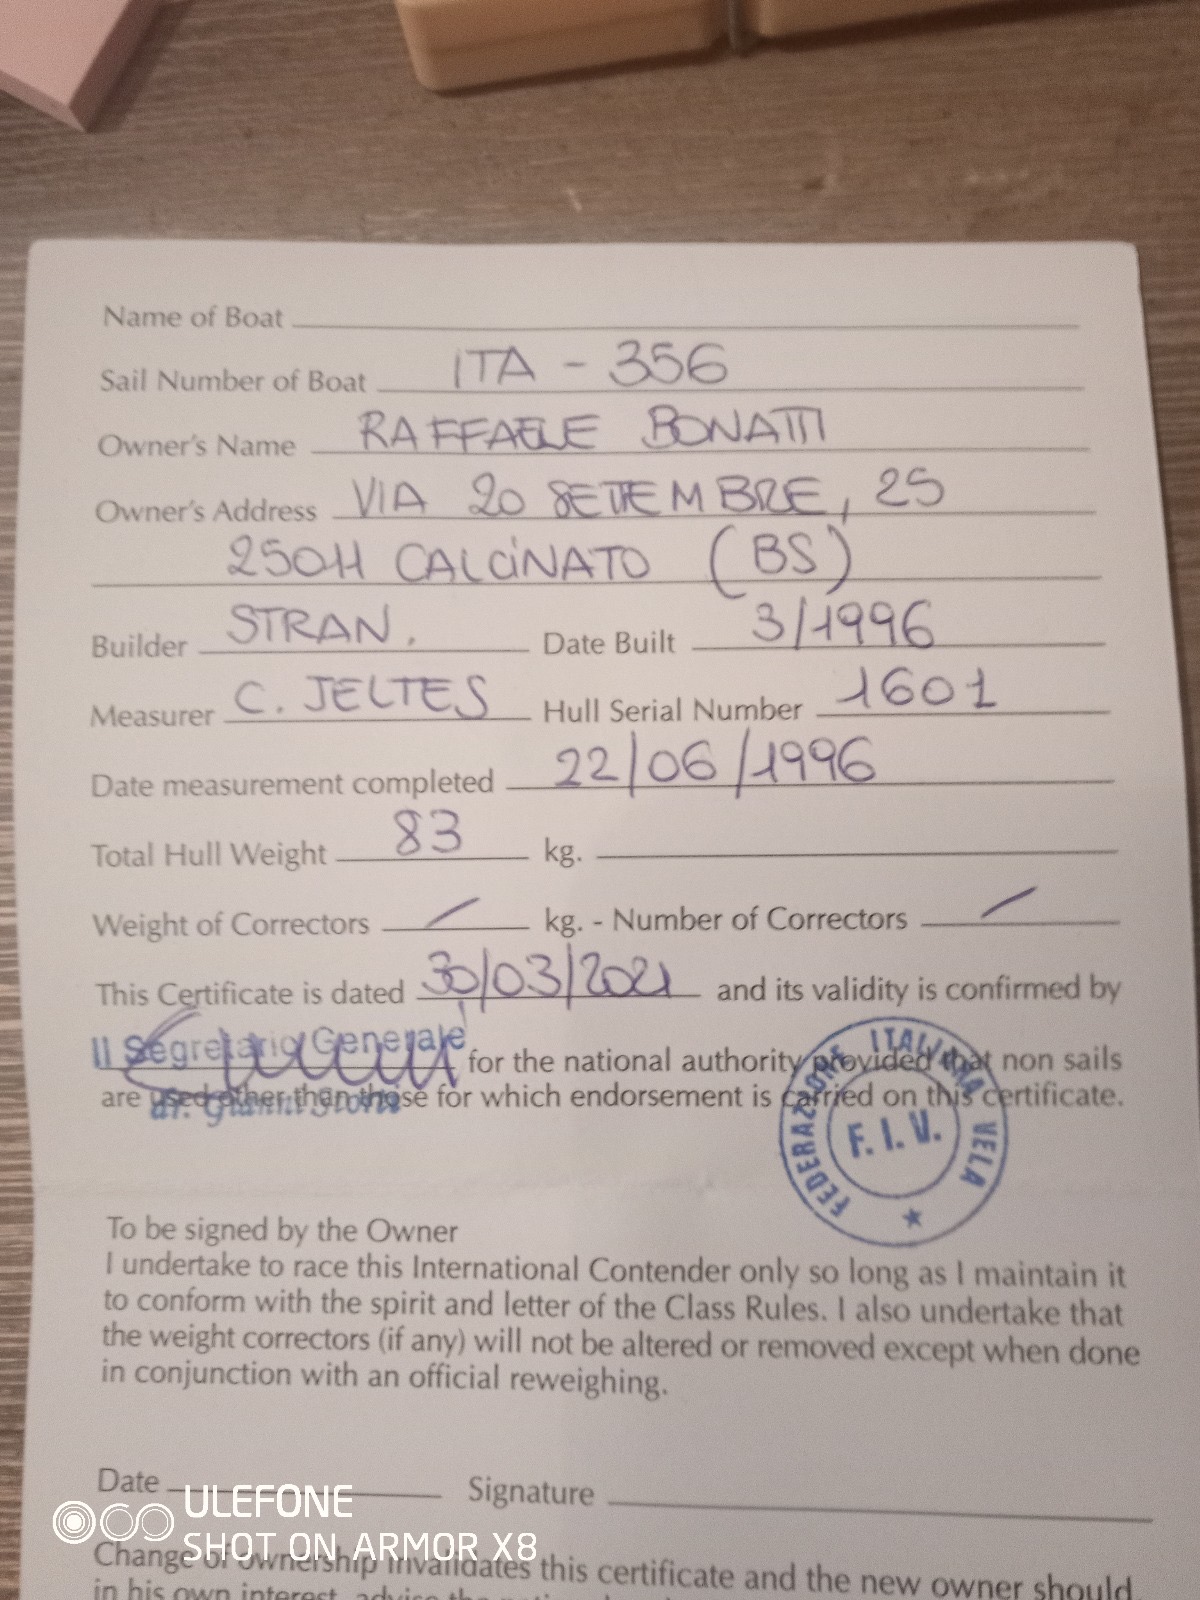 Name of Boat
Sail Number of Boat ITA - 356
Owner's Name RAFFAELE BONATTI
Owner's Address VIA 20 SETTEMBRE, 25
25011 CALCINATO (BS)
Builder STRAN. Date Built 3/1996
Measurer C. JELTES Hull Serial Number 1601
Date measurement completed 22/06/1996
Total Hull Weight 83 kg.
Weight of Correctors / kg. - Number of Correctors /
This Certificate is dated 30/03/2021 and its validity is confirmed by
Il Segretario Generale for the national authority provided that non sails
are used other than those for which endorsement is carried on this certificate.
dr. Gianni Storti
FEDERAZIONE ITALIANA VELA
F. I. V.
To be signed by the Owner
I undertake to race this International Contender only so long as I maintain it
to conform with the spirit and letter of the Class Rules. I also undertake that
the weight correctors (if any) will not be altered or removed except when done
in conjunction with an official reweighing.
Date Signature
ULEFONE
SHOT ON ARMOR X8
Change of ownership invalidates this certificate and the new owner should,
in his own interest, advise the